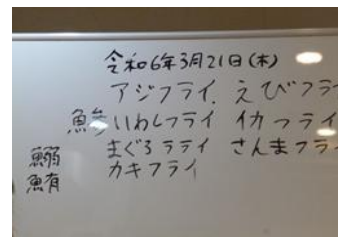 令和6年3月21日(木)
アジフライ. えびフラ
鯵 いわしフライ イカフライ
鰯 まぐろフライ さんまフラ
鮪 カキフライ